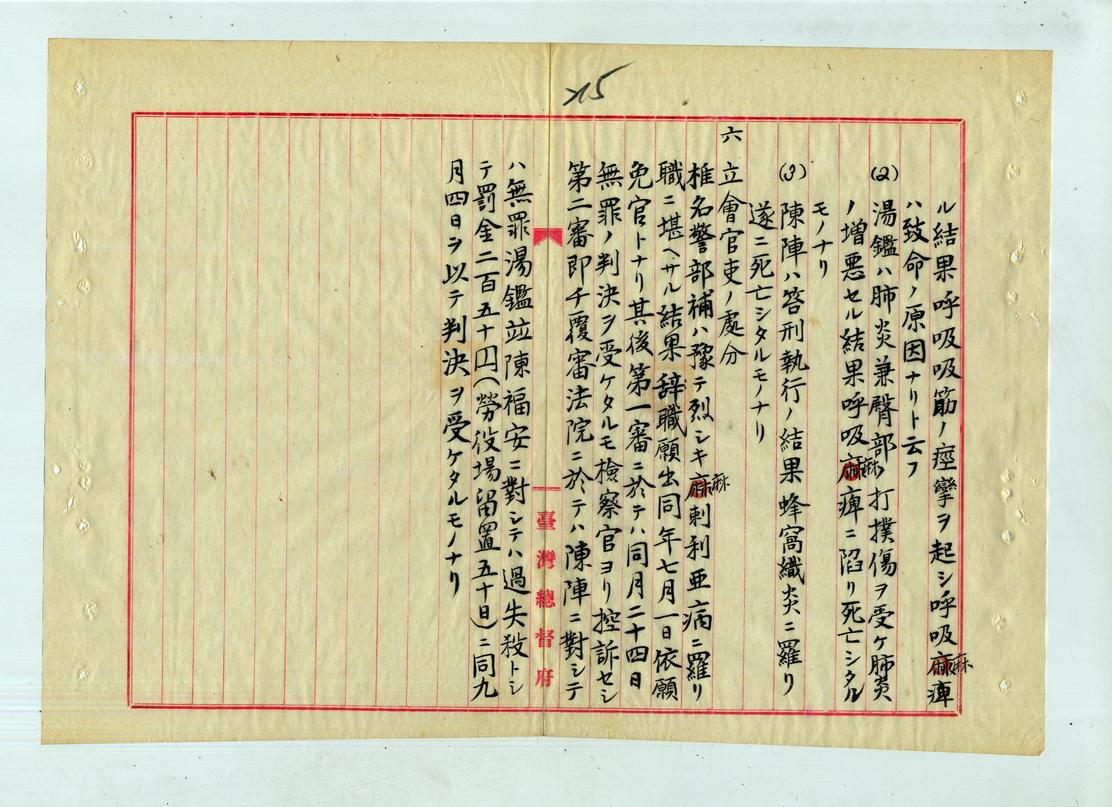 215
ル結果呼吸吸筋ノ痙攣ヲ起シ呼吸麻痺
ハ致命ノ原因ナリト云フ
(2) 湯鑑ハ肺炎兼臀部ノ打撲傷ヲ受ケ肺炎
ノ増悪セル結果呼吸麻痺ニ陥リ死亡シタル
モノナリ
(3) 陳陣ハ笞刑執行ノ結果蜂窩織炎ニ罹リ
遂ニ死亡シタルモノナリ
六 立會官吏ノ處分
椎名警部補ハ豫テ烈シキ麻剌利亜病ニ罹リ
職ニ堪ヘサル結果辞職願出同年七月一日依願
免官トナリ其後第一審ニ於テハ同月二十四日
無罪ノ判決ヲ受ケタルモ檢察官ヨリ控訴セシ
第二審即チ覆審法院ニ於テハ陳陣ニ對シテ
臺灣總督府
ハ無罪湯鑑並陳福安ニ對シテハ過失殺トシ
テ罰金二百五十円(勞役場留置五十日)ニ同九
月四日ヲ以テ判決ヲ受ケタルモノナリ